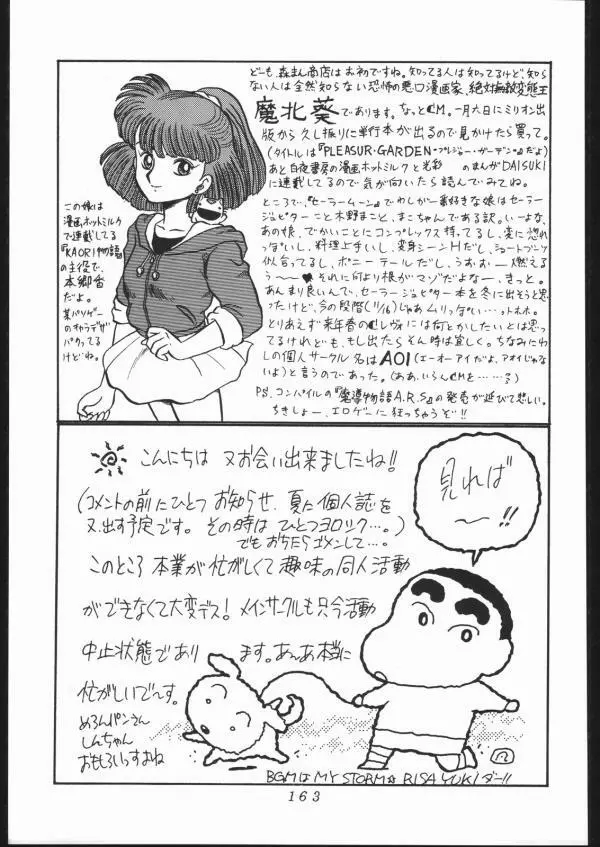 どーも、森まん商店はお初ですね。知ってる人は知ってるけど、知ら
ない人は全然知らない恐怖の悪口漫画家、絶対無敵変態王
魔北葵であります。なっとCM。一月六日にミリオン出
版から久し振りに単行本が出るので見かけたら買って。
(タイトルは『PLEASUR・GARDEN-プレジャー・ガーデン-』だよ)
あと白夜書房の漫画ホットミルクと光彩 のまんがDAISUKI
に連載してるので気が向いたら読んでみてね。
ところで、『セーラームーン』でわしが一番好きな娘はセーラー
ジュピターこと木野まこと、まこちゃんである訳。いーよな、
あの娘、でかいことにコンプレックス持ってるし、変に惚れ
っぽいし、料理上手いし、変身シーンHだし、ショートブーツ
似合ってるし、ポニーテールだし、うおぉー燃えるう
〜〜♥それに何より根がマゾだよなー、きっと。
あんまり良いんで、セーラージュピター本を冬に出そうと思
ったけど、今の段階(11/16)じゃあムリっぽい…ットホホ。
とりあえず来年春のCレヴォには何とかしたいとは思っ
てるけれども、もし出たらそん時は宜しく。ちなみにわ
しの個人サークル名はAOI(エーオーアイだよ、アオイじゃな
いよ)と言うのであった。(ああ、いろんCMを……？)
PS.コンパイルの『魔導物語A.R.S』の発売が延びて悲しい。
ちきしょー、エロゲーに狂っちゃうぞ!!
この娘は
漫画ホットミルク
で連載してる
『KAORI物語』
の主役で、
本郷香
だよ。
某パソゲー
のキャラデザ
パクってる
けどね。
こんにちは 又お会い出来ましたね!!
(コメントの前にひとつお知らせ、夏に個人誌を
又、出す予定です。その時はひとつヨロシク…。)
でもおちたらゴメンして…。
このところ 本業が忙がしくて趣味の同人活動
ができなくて大変デス!メインサークルも只今活動
中止状態であり ます。あんあ本当に
忙がしいで〜す。
めろんパンさん
しんちゃん
おもろいっすよね
見れば
〜!!
BGMはMY STORM☆RISA YUKIダー!!
163